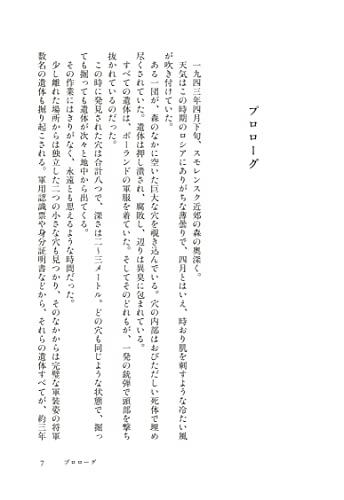 プロローグ
一九四三年四月下旬、スモレンスク近郊の森の奥深く。
天気はこの時期のロシアにありがちな薄曇りで、四月とはいえ、時おり肌を刺すような冷たい風
が吹き付けていた。
ある一団が、森のなかに空いた巨大な穴を覗き込んでいる。穴の内部はおびただしい死体で埋め
尽くされていた。遺体は押し潰され、腐敗し、辺りは異臭に包まれている。
すべての遺体は、ポーランドの軍服を着ていた。そしてそのどれもが、一発の銃弾で頭部を撃ち
抜かれているのだった。
この時に発見された穴は合計八つで、深さは二〜三メートル。どの穴も同じような状態で、掘っ
ても掘っても遺体が次々と地中から出てくる。
その作業にはきりがなく、永遠とも思えるような時間だった。
少し離れた場所からは独立した二つの小さな穴も見つかり、そのなかからは完璧な軍装姿の将軍
数名の遺体も掘り起こされる。軍用認識票や身分証明書などから、それらの遺体すべてが、約三年
7 プロローグ